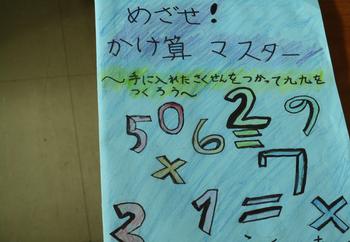 めざせ!
かけ算 マスター
～手に入れたさくせんをつかって九九を
つくろう～
50 6 2 9
× = 7
2 1 = ×